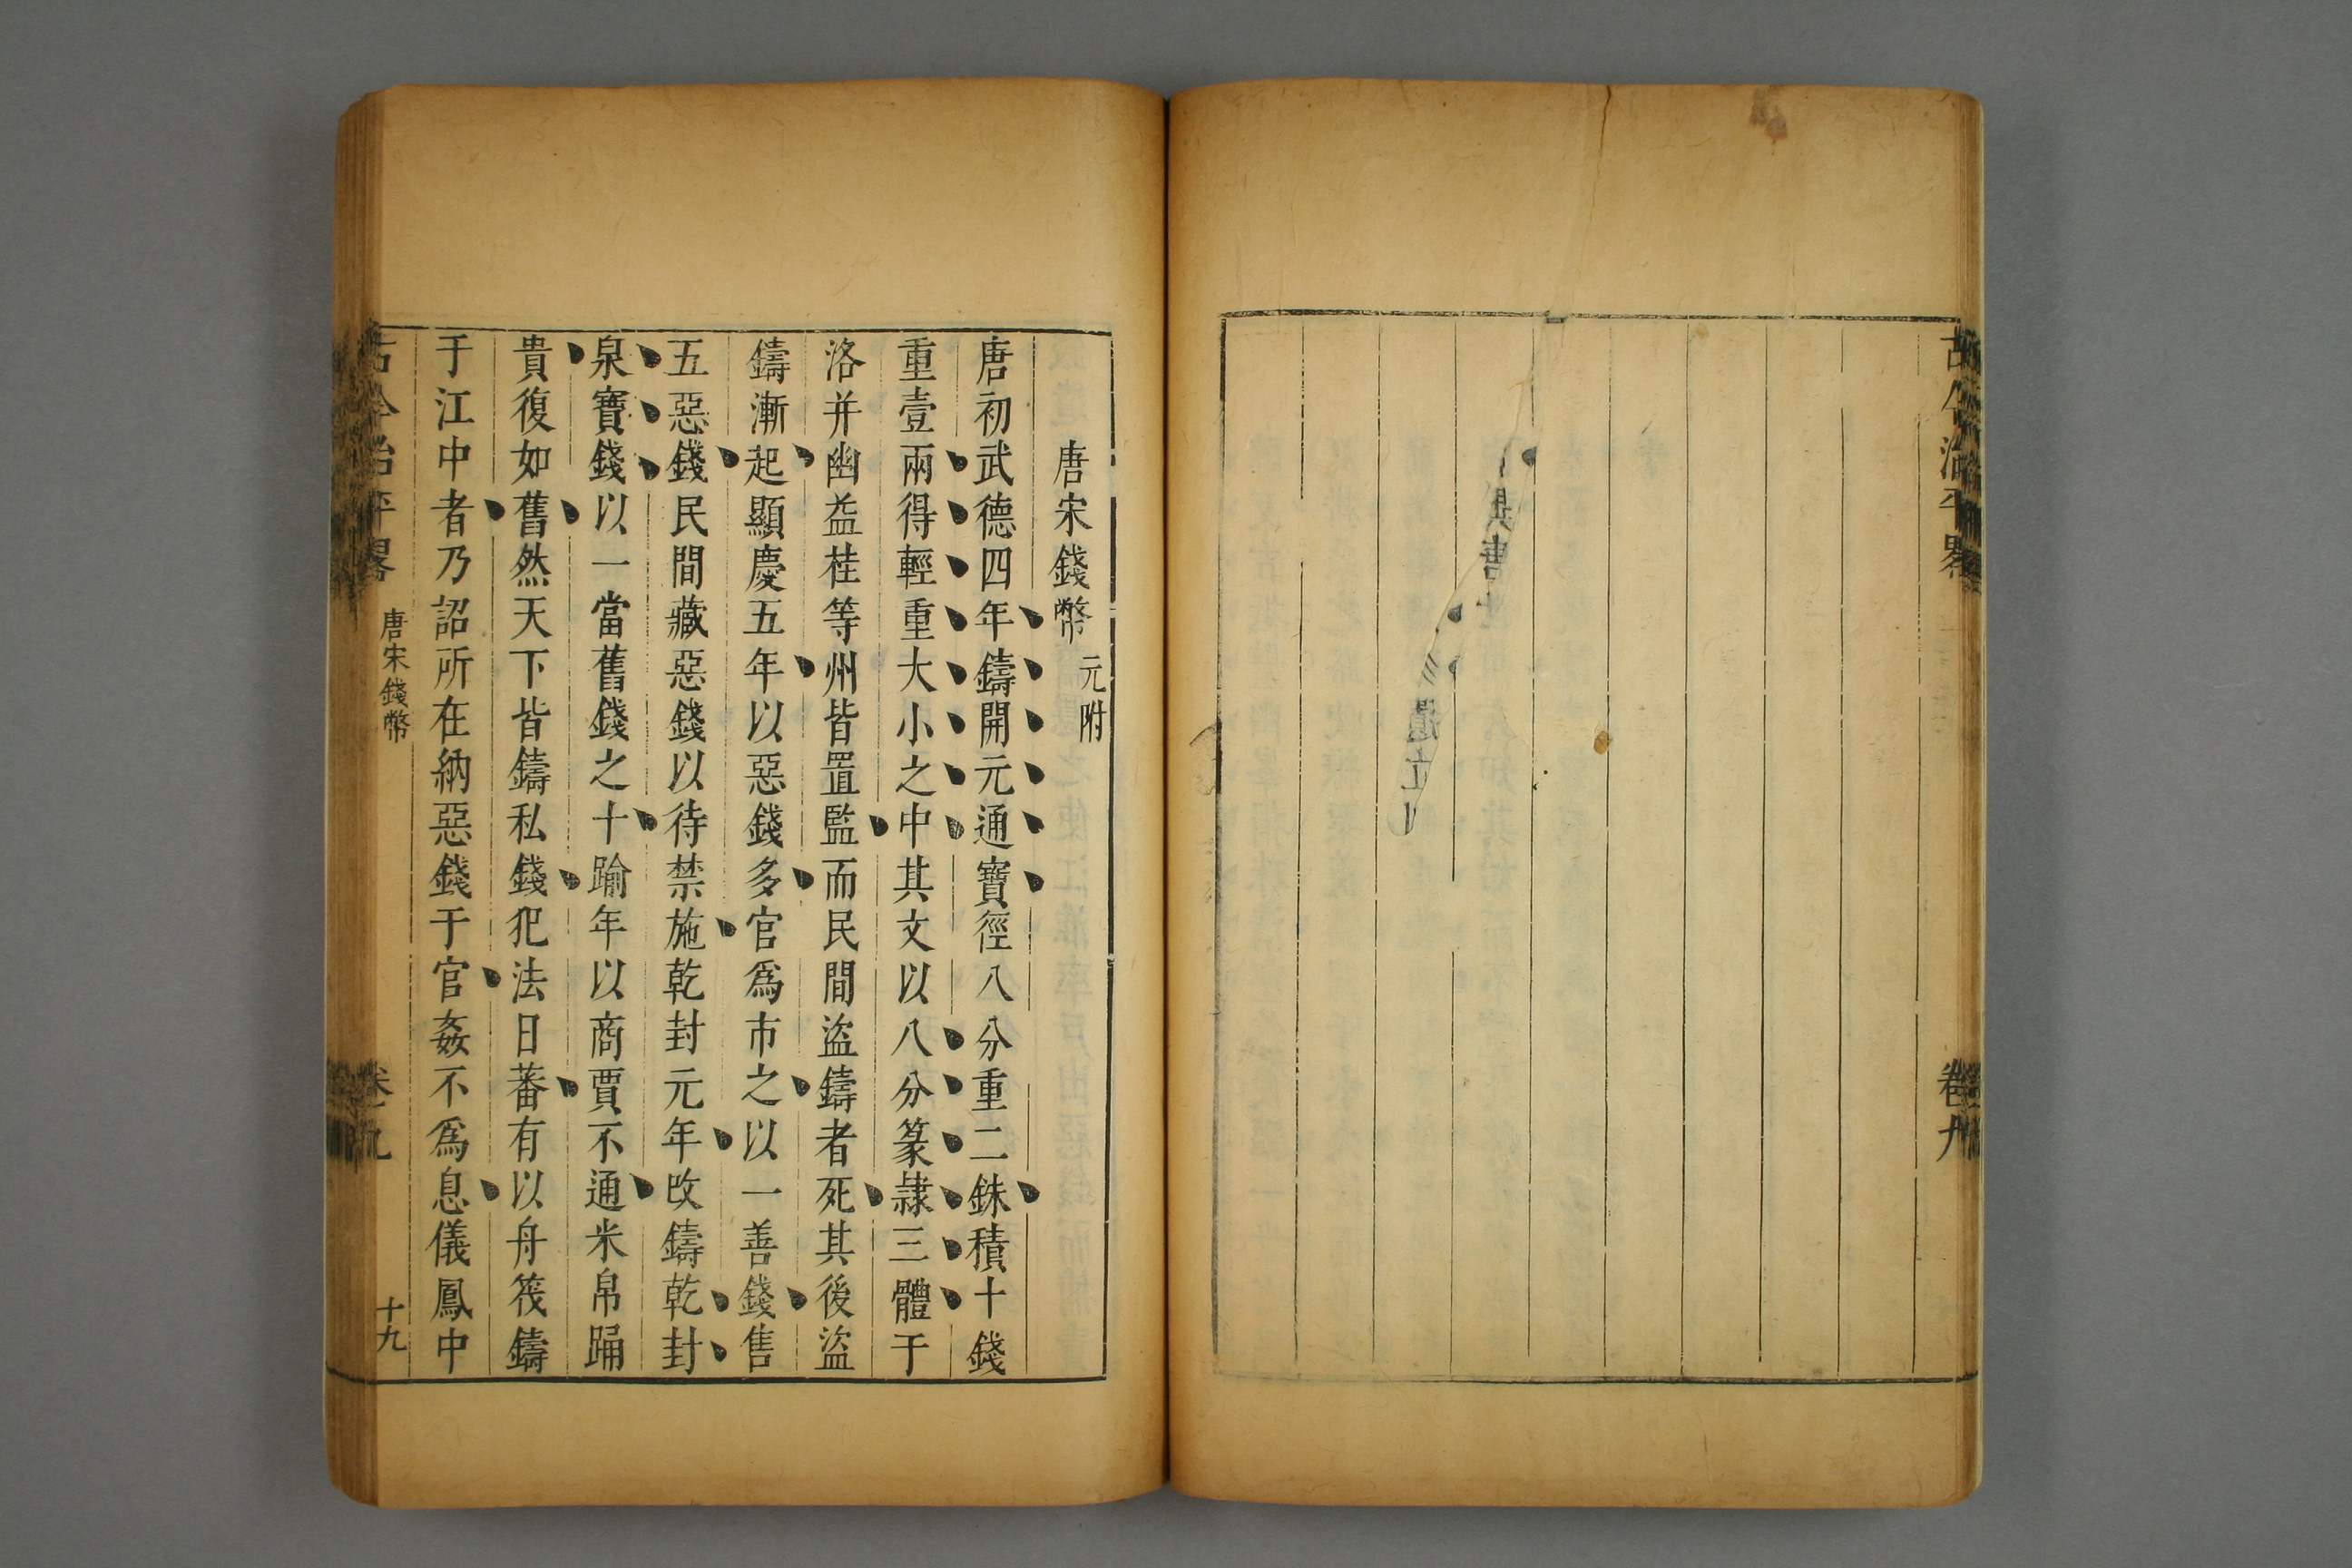 古今治平畧
卷九
唐宋錢幣元附
唐初武德四年鑄開元通寶徑八分重二銖積十錢
重壹兩得輕重大小之中其文以八分篆隷三體于
洛并幽益桂等州皆置監而民間盜鑄者死其後盜
鑄漸起顯慶五年以惡錢多官爲市之以一善錢售
五惡錢民間藏惡錢以待禁施乾封元年改鑄乾封
泉寶錢以一當舊錢之十踰年以商賈不通米帛踊
貴復如舊然天下皆鑄私錢犯法日蕃有以舟筏鑄
于江中者乃詔所在納惡錢于官姦不爲息儀鳳中
古今治平畧
唐宋錢幣
卷九
十九